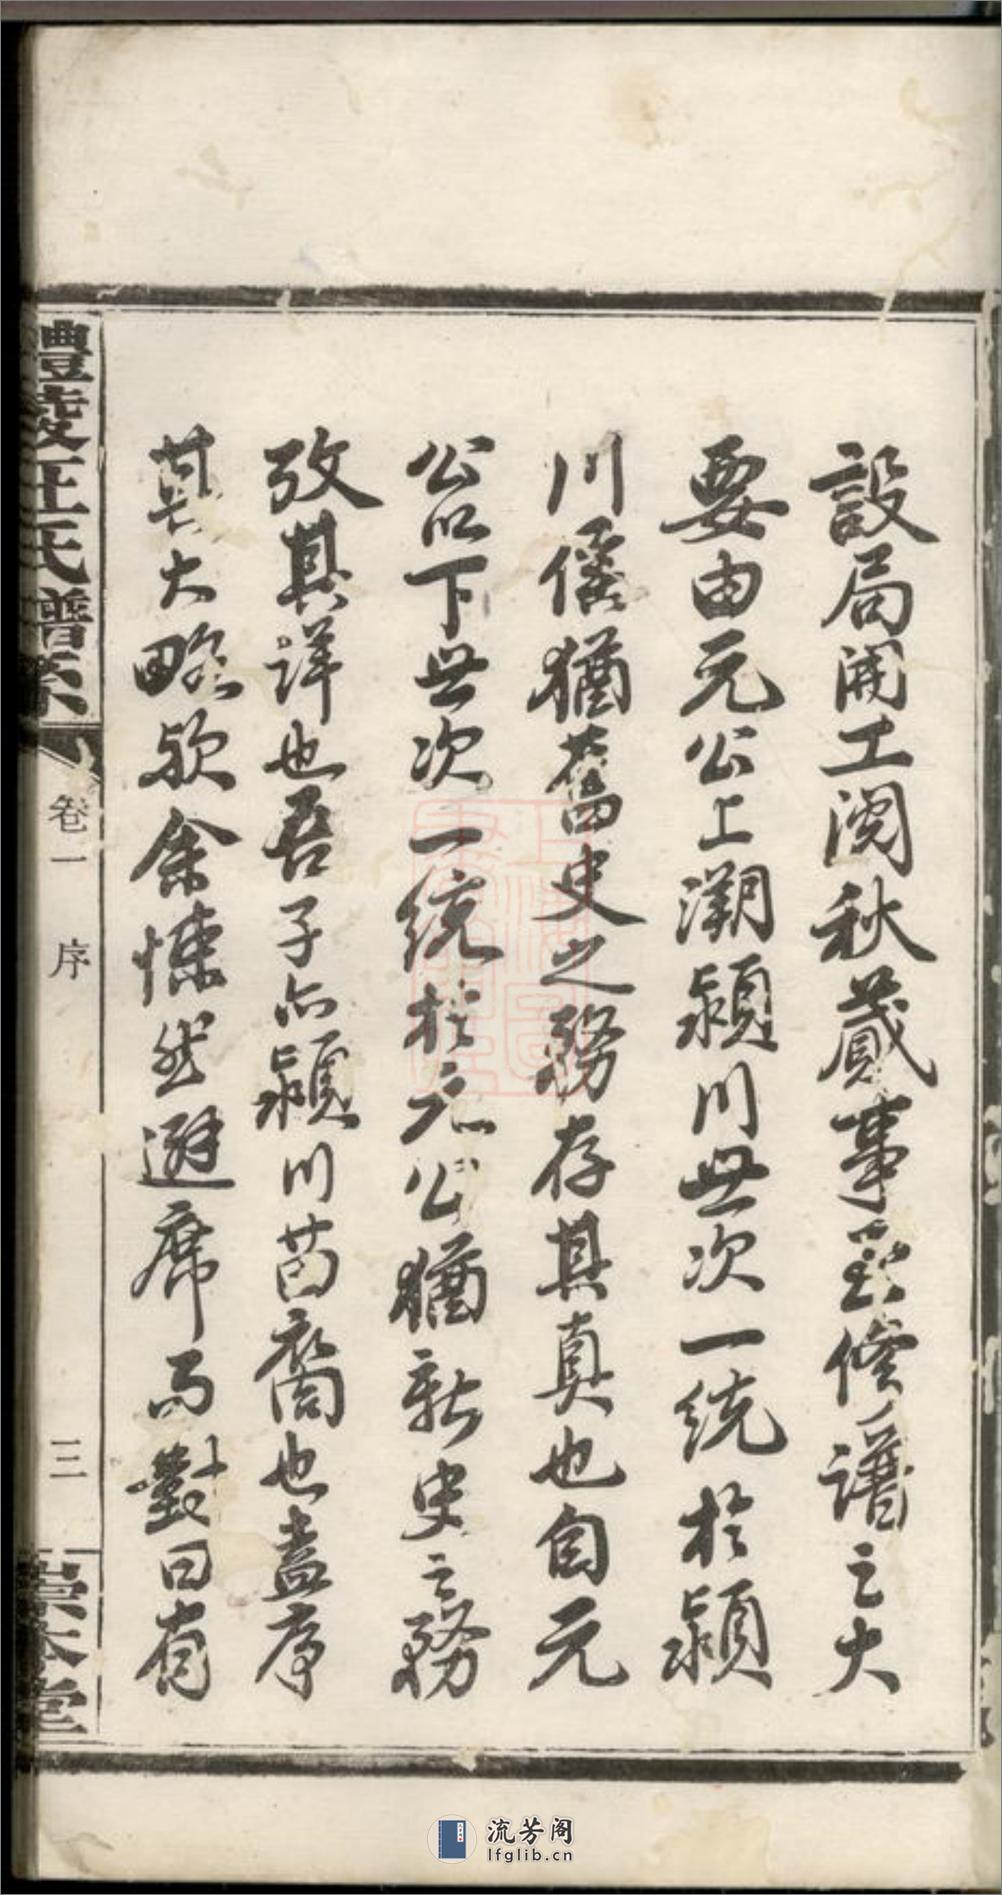 設局開工閱秋蕆事至修譜之大
要由元公上溯潁川世次一統於潁
川係猶舊史之務存其真也自元
公以下世次一統於元公猶新史之務
攷其詳也吾子亦潁川苗裔也盍序
其大略歟余悚然避席而對曰有
醴陵汪氏譜系
卷一 序
三
崇本堂
流芳阁
lfglib.cn